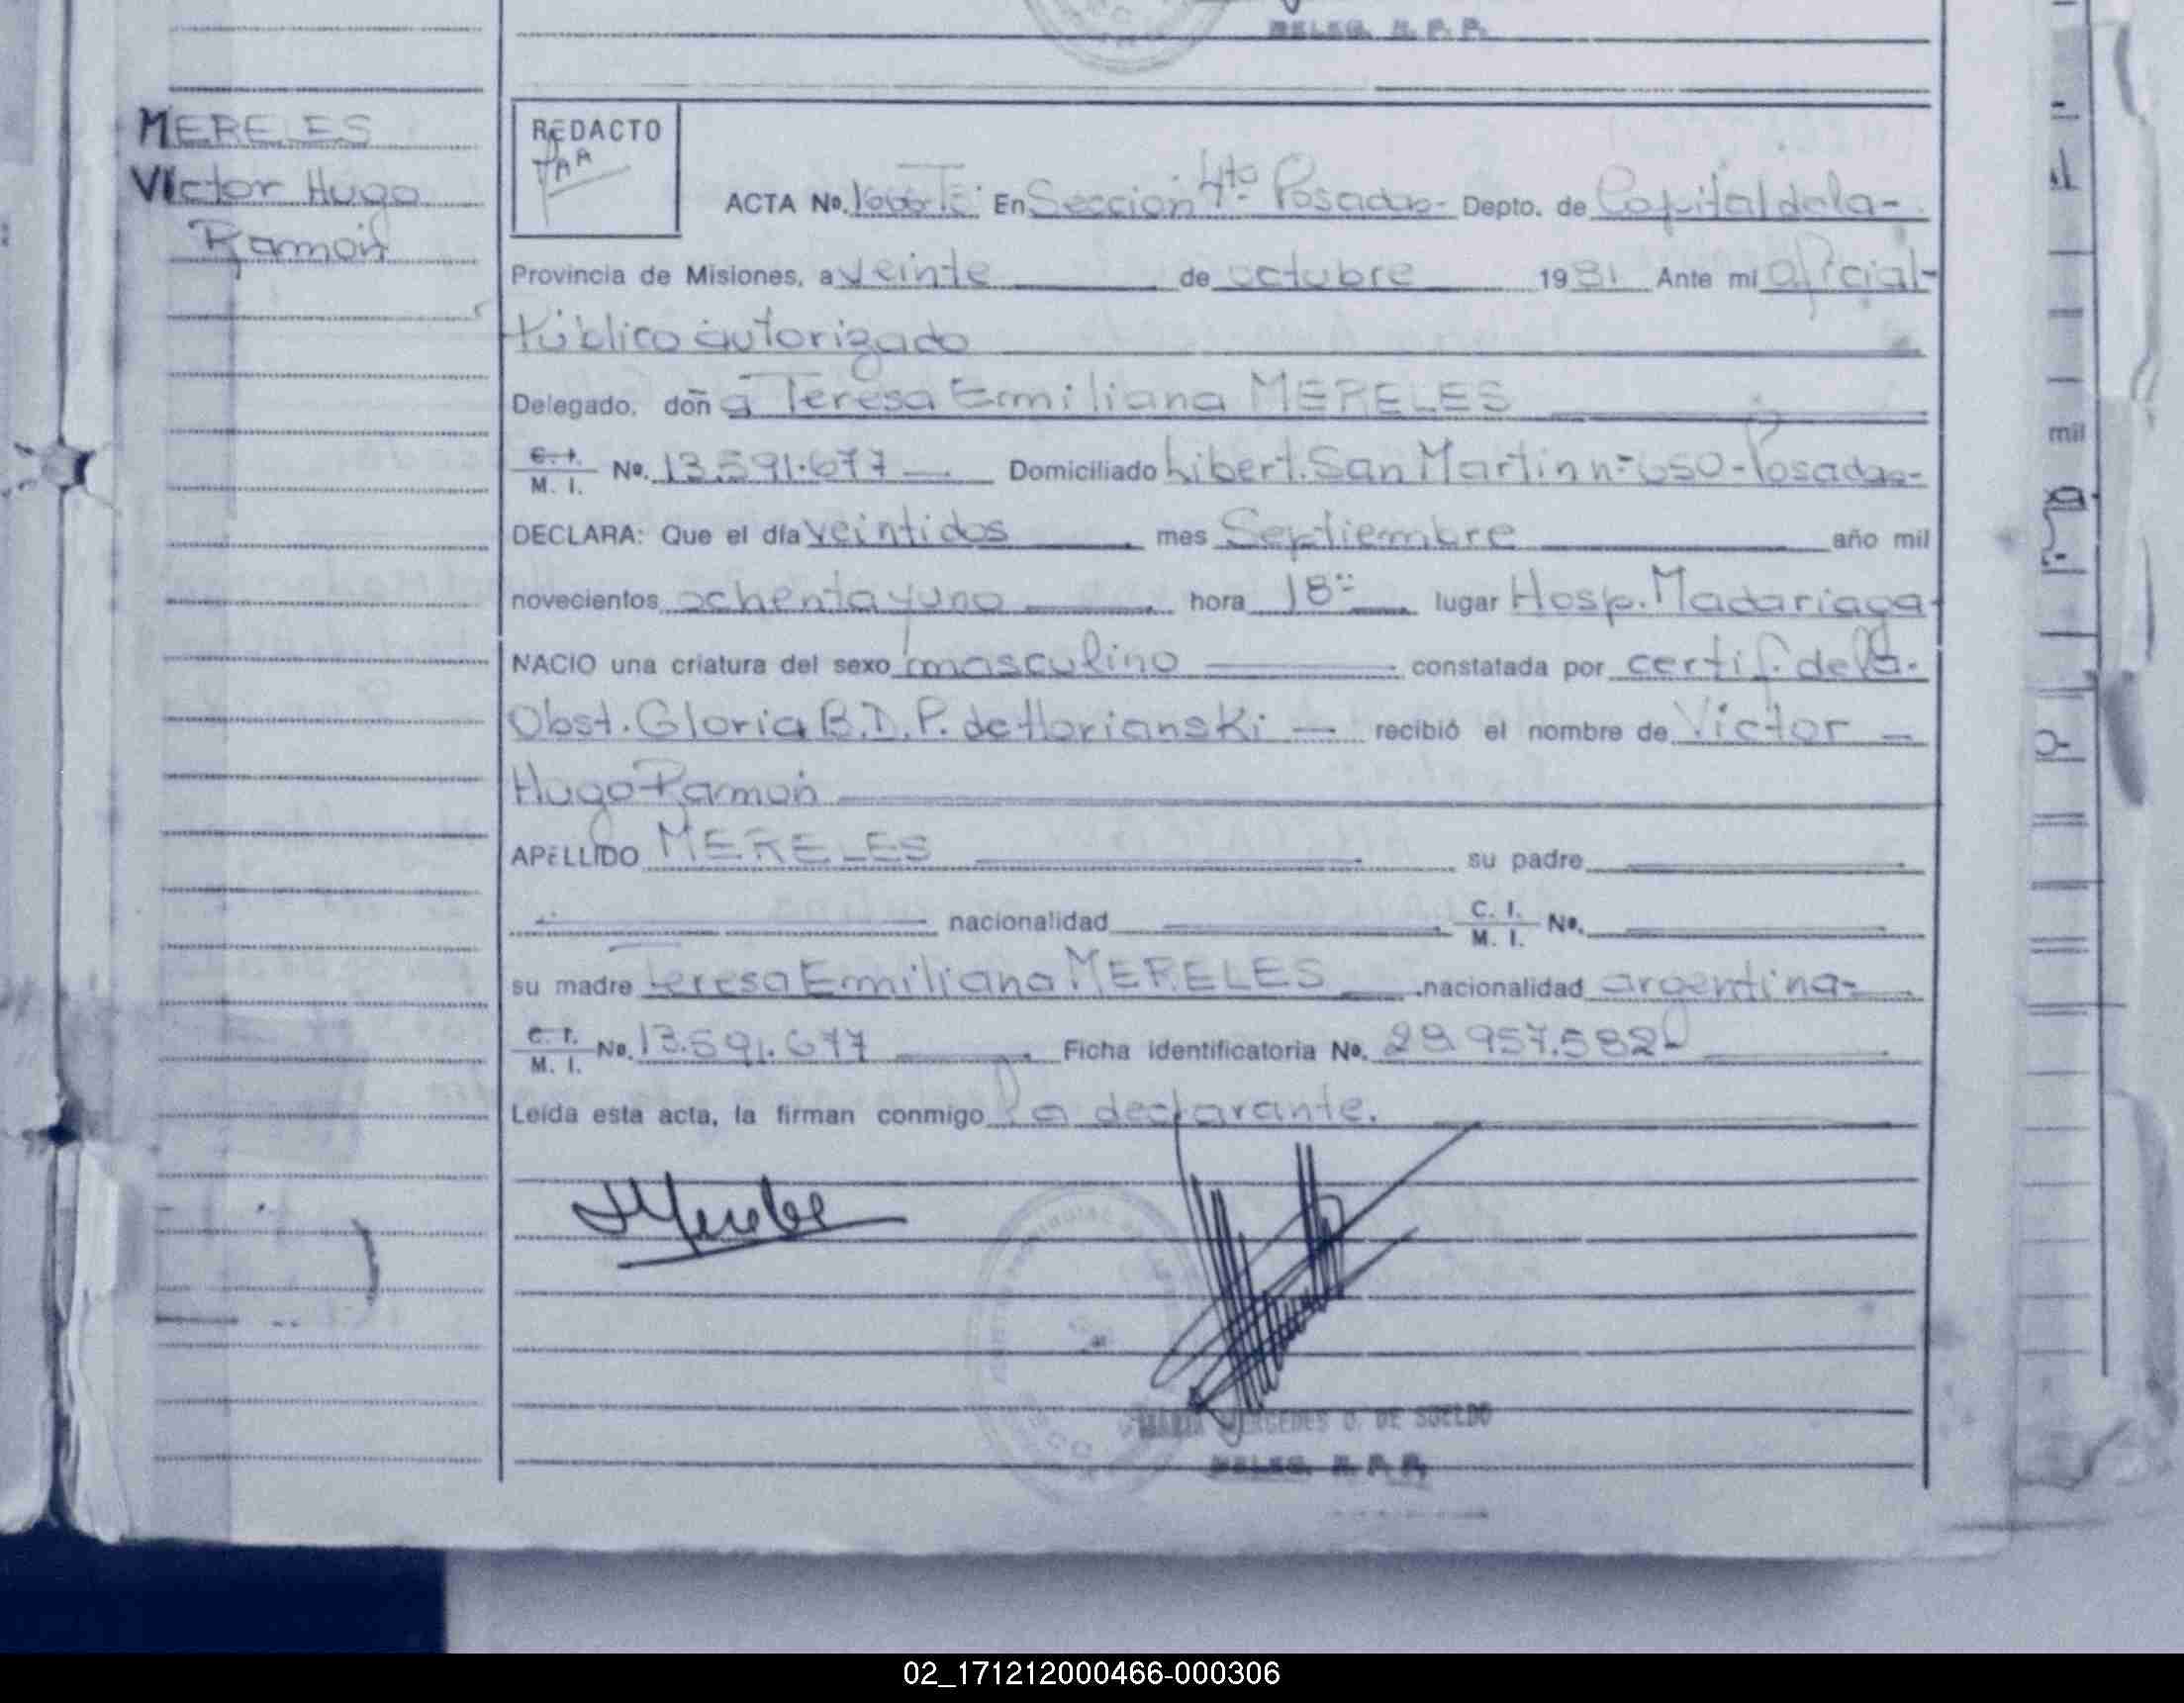 DELEG. R. P. P.
MERELES
Victor Hugo
Ramón
REDACTO
ACTA No. En Sección 4ta Posadas- Depto. de Capital de la-
Provincia de Misiones, a veinte de octubre 1981 Ante mi oficial-
Público autorizado
Delegado, doña Teresa Emiliana MERELES
C. I. M. I. No. 13.591.677 Domiciliado Libert. San Martin nº 650-Posadas-
DECLARA: Que el día veintidos mes Septiembre año mil
novecientos ochenta y uno hora 18 lugar Hosp. Madariaga-
NACIO una criatura del sexo masculino constatada por certif. de la-
Obst. Gloria B.D.P. de Horianski recibió el nombre de Victor
Hugo Ramón
APELLIDO MERELES su padre
nacionalidad C. I. M. I. No.
su madre Teresa Emiliana MERELES nacionalidad argentina-
C. I. M. I. No. 13.591.677 Ficha identificatoria No. 28.957.582
Leída esta acta, la firman conmigo la declarante.
MERCEDES O. DE SUELDO
DELEG. R. P. P.
mil
02_171212000466-000306